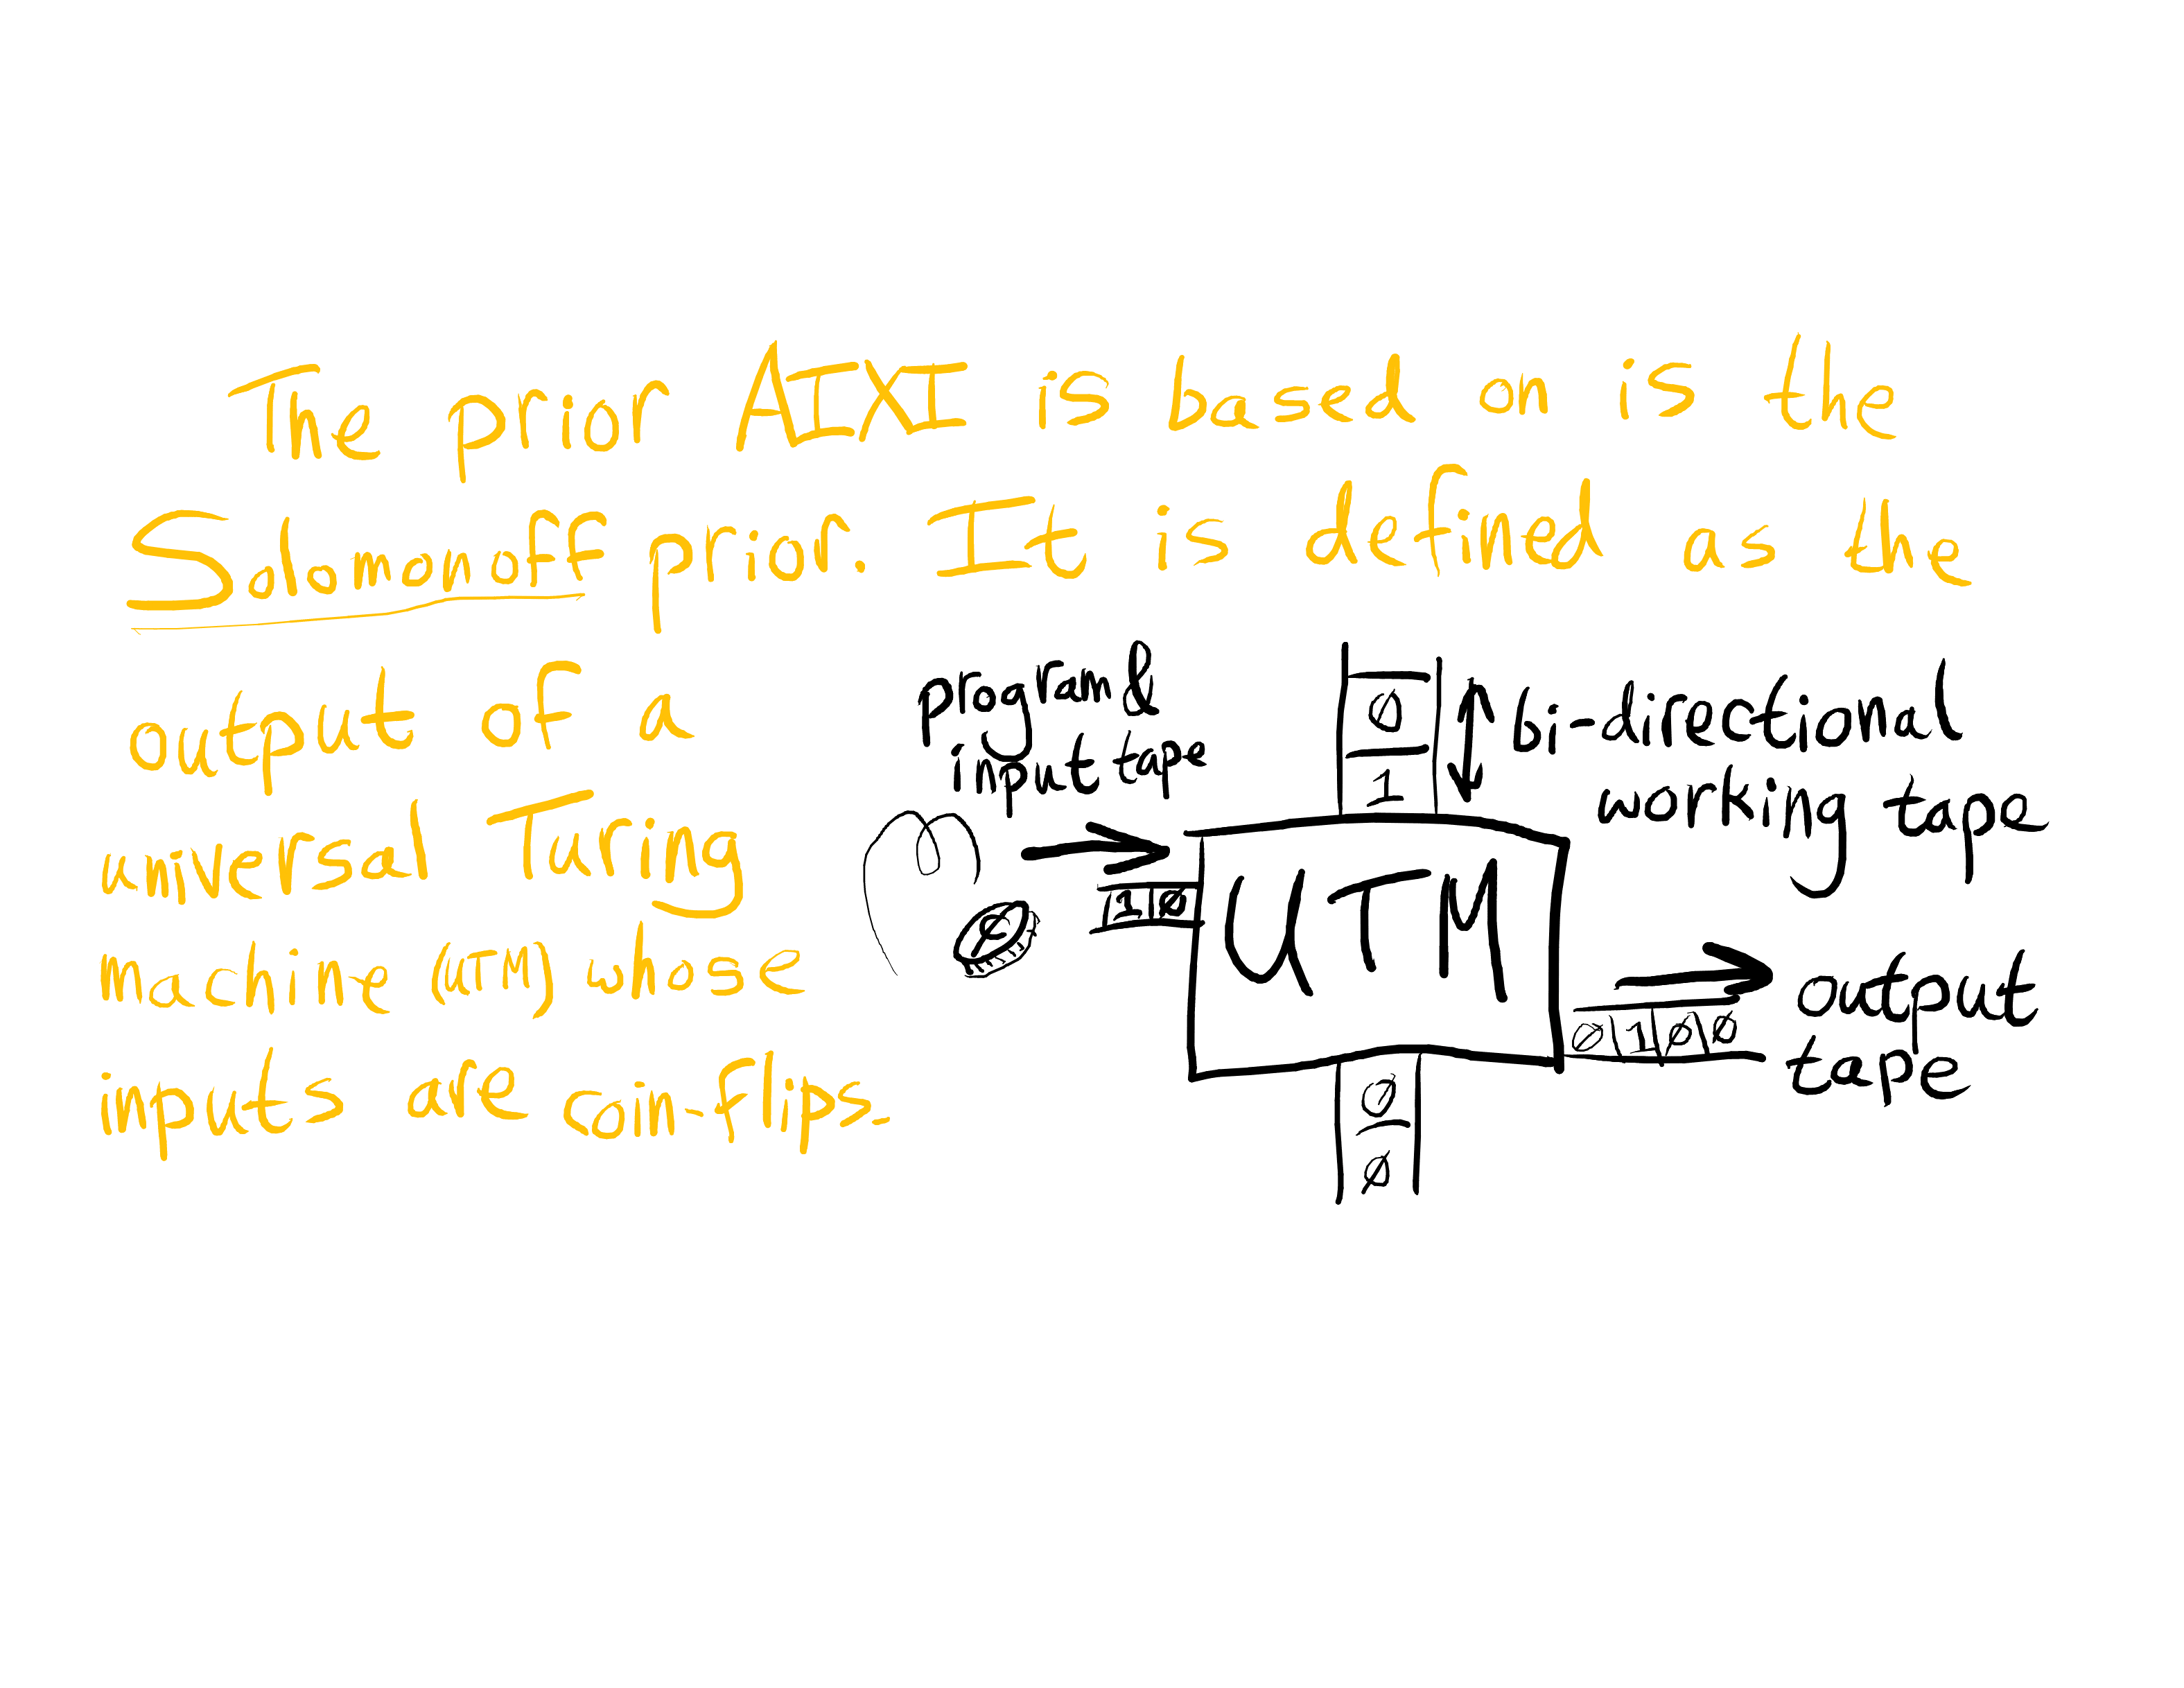 The prior AIXI is based on is the
Solomonoff prior. It is defined as the
output of a
universal Turing
machine (UTM) whose
inputs are coin-flips.
program &
input tape
0
1
bi-directional
working tape
0
1 0
UTM
0 1 0 0
output
tape
0
0